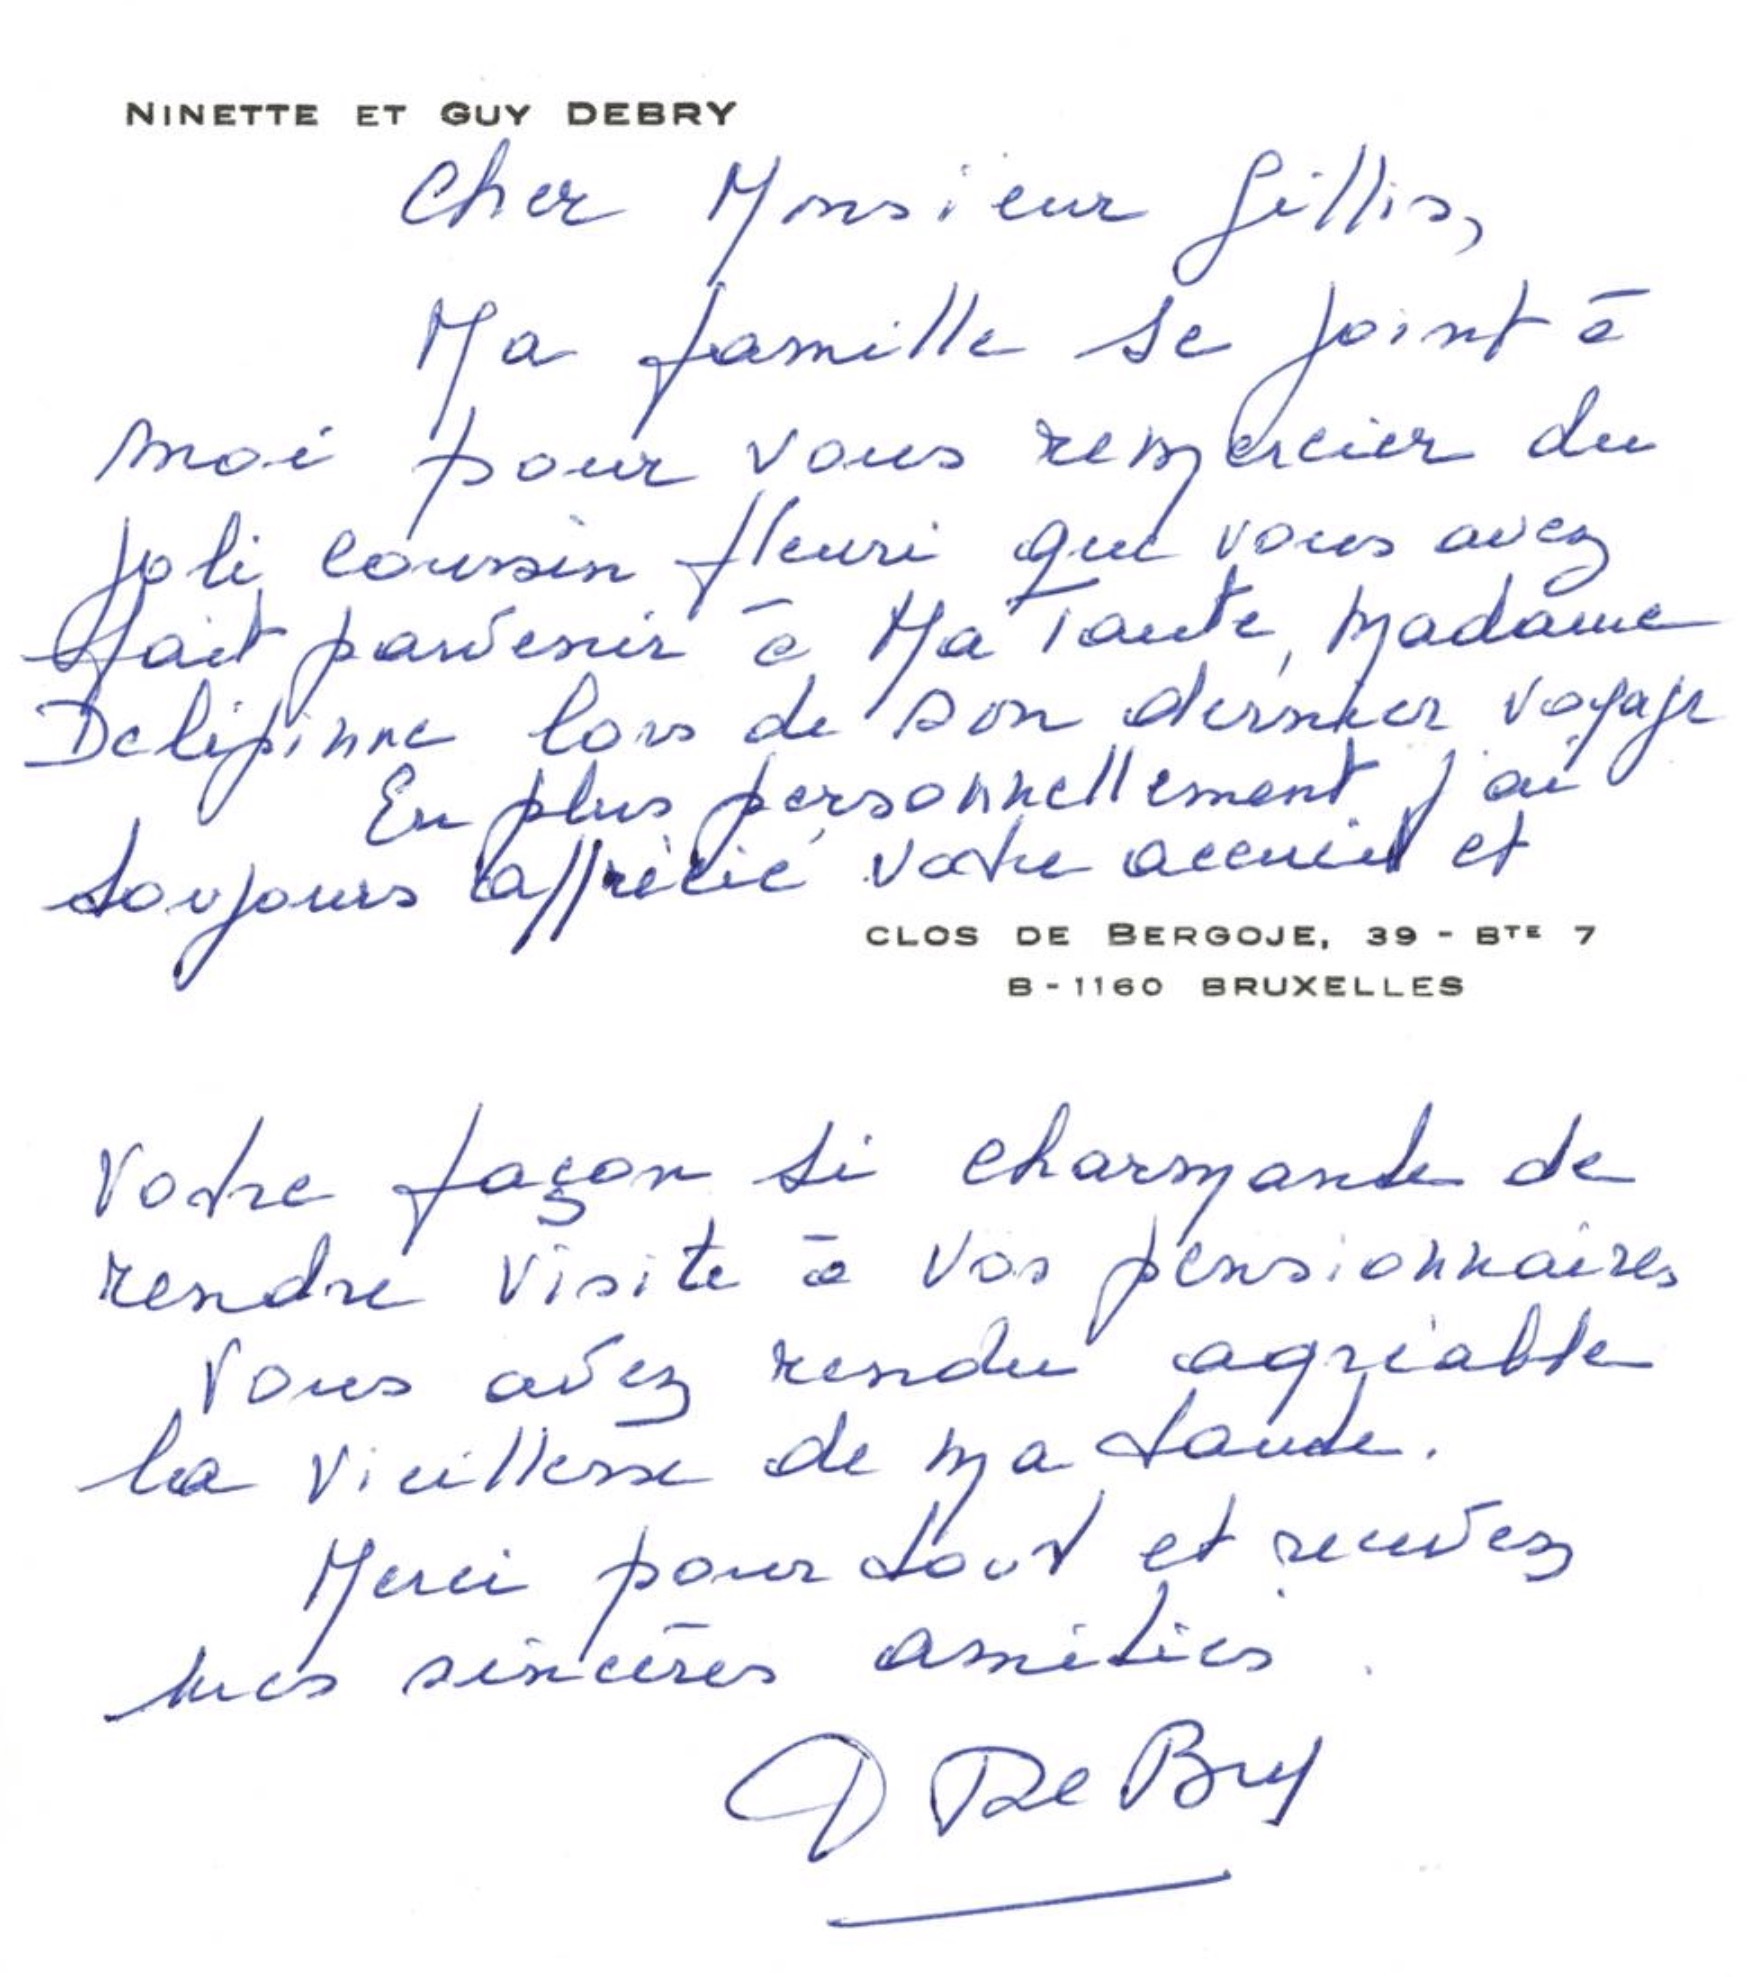 NINETTE ET GUY DEBRY
Cher Monsieur Gillis,
Ma famille se joint à
moi pour vous remercier du
joli coussin fleuri que vous avez
fait parvenir à Ma Tante, Madame
Delipinne lors de son dernier voyage
En plus personnellement j'ai
toujours apprécié votre accueil et
CLOS DE BERGOJE, 39 - BTE 7
B-1160 BRUXELLES
Votre façon si charmante de
rendre visite à vos pensionnaires
Vous avez rendu agréable
la vieillesse de ma tante.
Merci pour tout et recevez
mes sincères amitiés.
De Bry